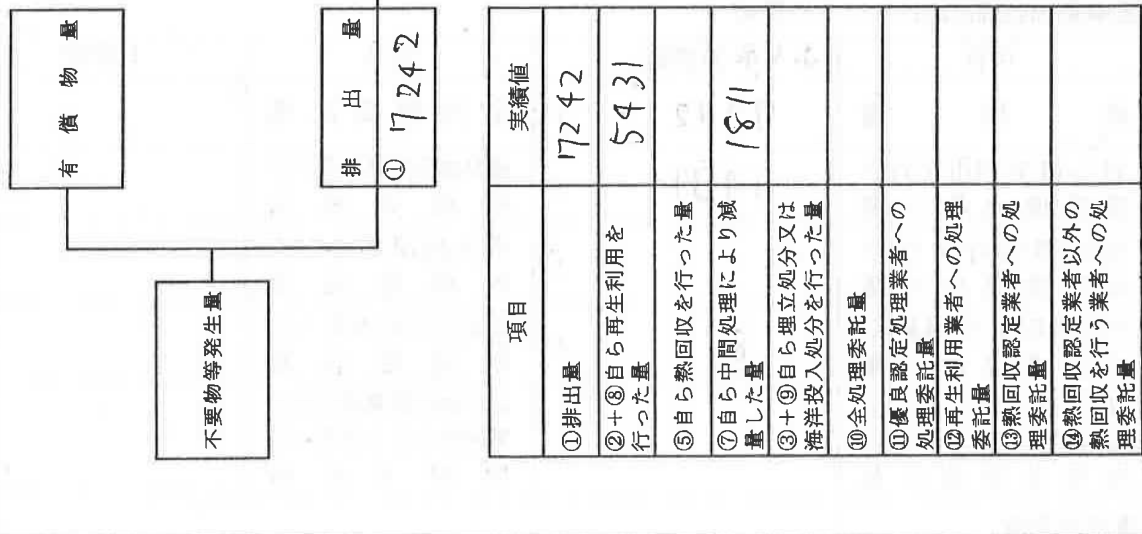 有償物量
不要物等発生量
排出量
① 17242
項目 実績値
①排出量 17242
②+⑧自ら再生利用を
行った量 15431
⑤自ら熱回収を行った量
⑦自ら中間処理により減
量した量 1811
③+⑨自ら埋立処分又は
海洋投入処分を行った量
⑩全処理委託量
⑪優良認定処理業者への
処理委託量
⑫再生利用業者への処理
委託量
⑬熱回収認定業者への処
理委託量
⑭熱回収認定業者以外の
熱回収を行う業者への処
理委託量